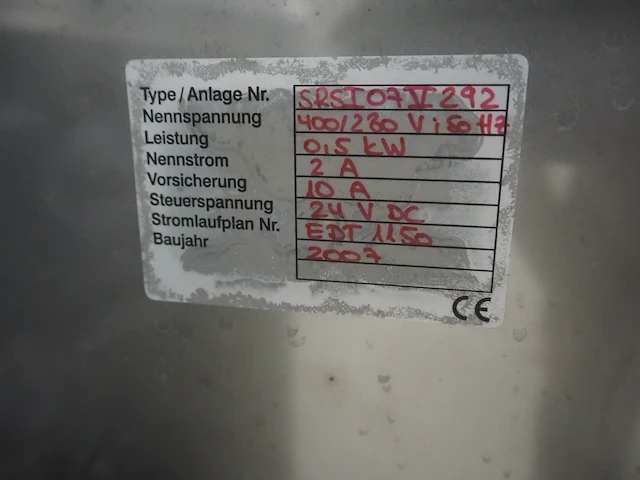 Type / Anlage Nr. SRSI07VI292
Nennspannung 400/230 V ; 50 Hz
Leistung 0,5 kW
Nennstrom 2 A
Vorsicherung 10 A
Steuerspannung 24 V DC
Stromlaufplan Nr. EDT 1150
Baujahr 2007
CE